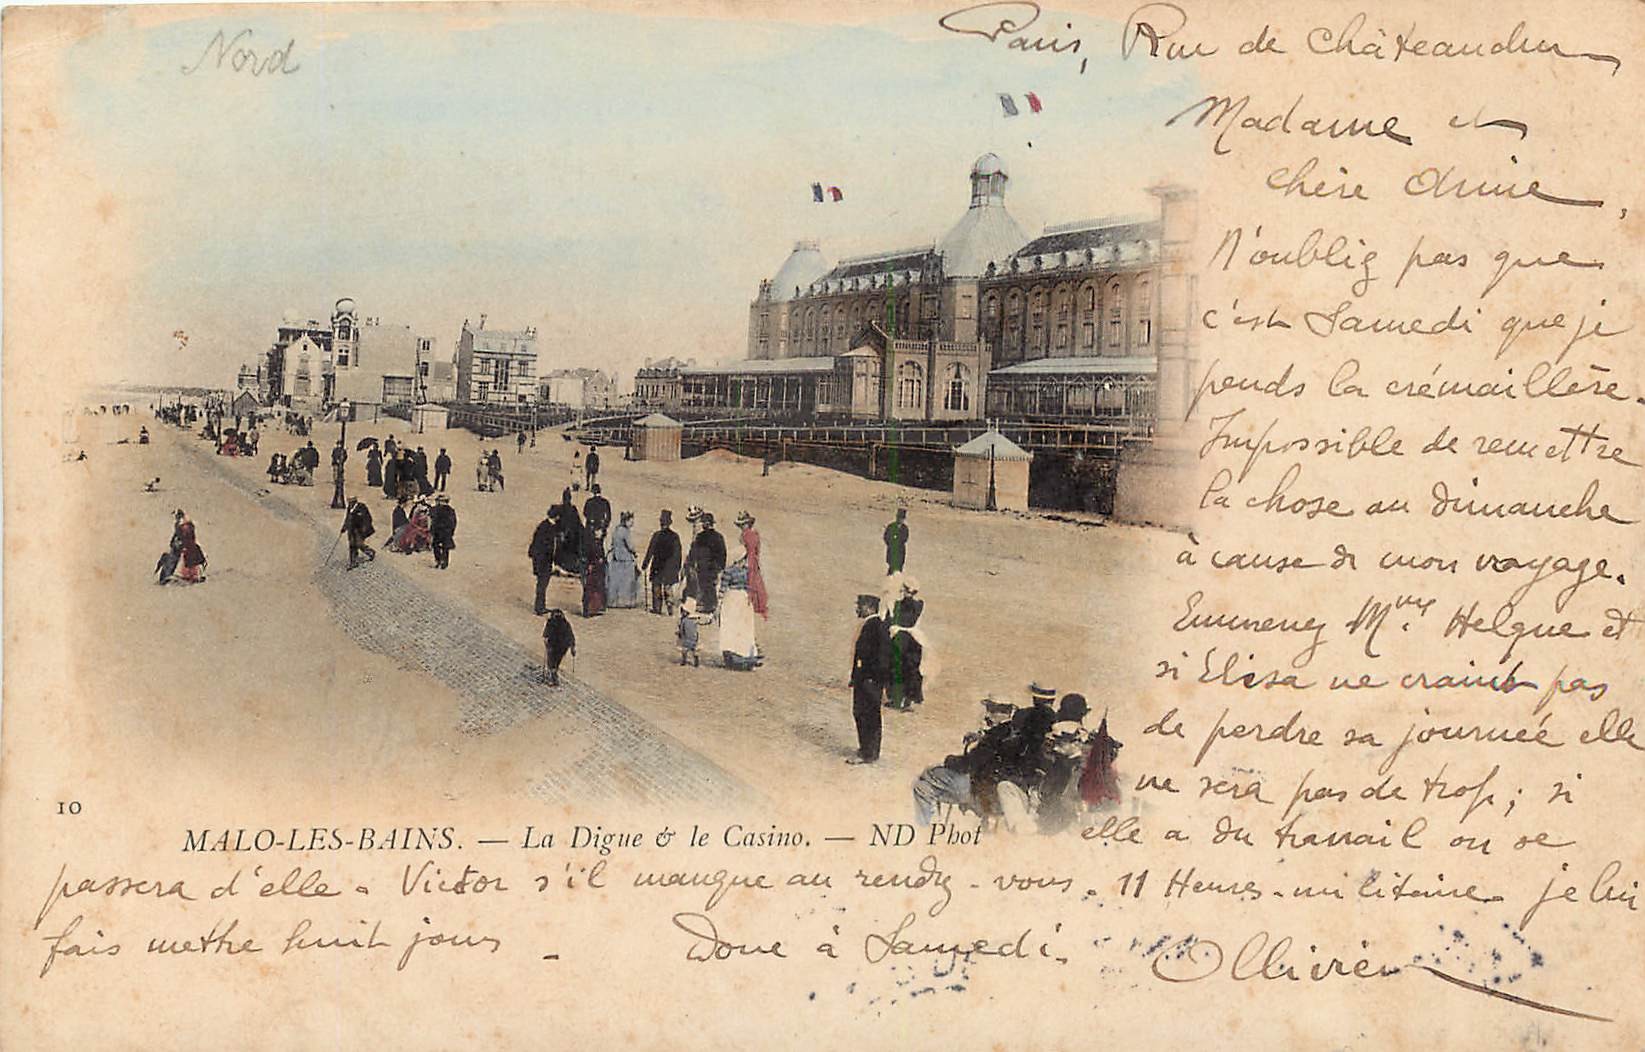 Nord
Paris, Rue de Châteaudun
Madame et
chère Amie,
N'oubliez pas que
c'est Samedi que je
pends la crémaillère.
Impossible de remettre
la chose au dimanche
à cause de mon voyage.
Emmenez Mme Helque et
si Élisa ne craint pas
de perdre sa journée elle
ne sera pas de trop; si
elle a du travail on se
10
MALO-LES-BAINS. — La Digue & le Casino. — ND Phot
passera d'elle. Victor s'il manque au rendez-vous. 11 Heures-militaire je lui
fais mettre huit jours - Donc à Samedi.
Ollivier